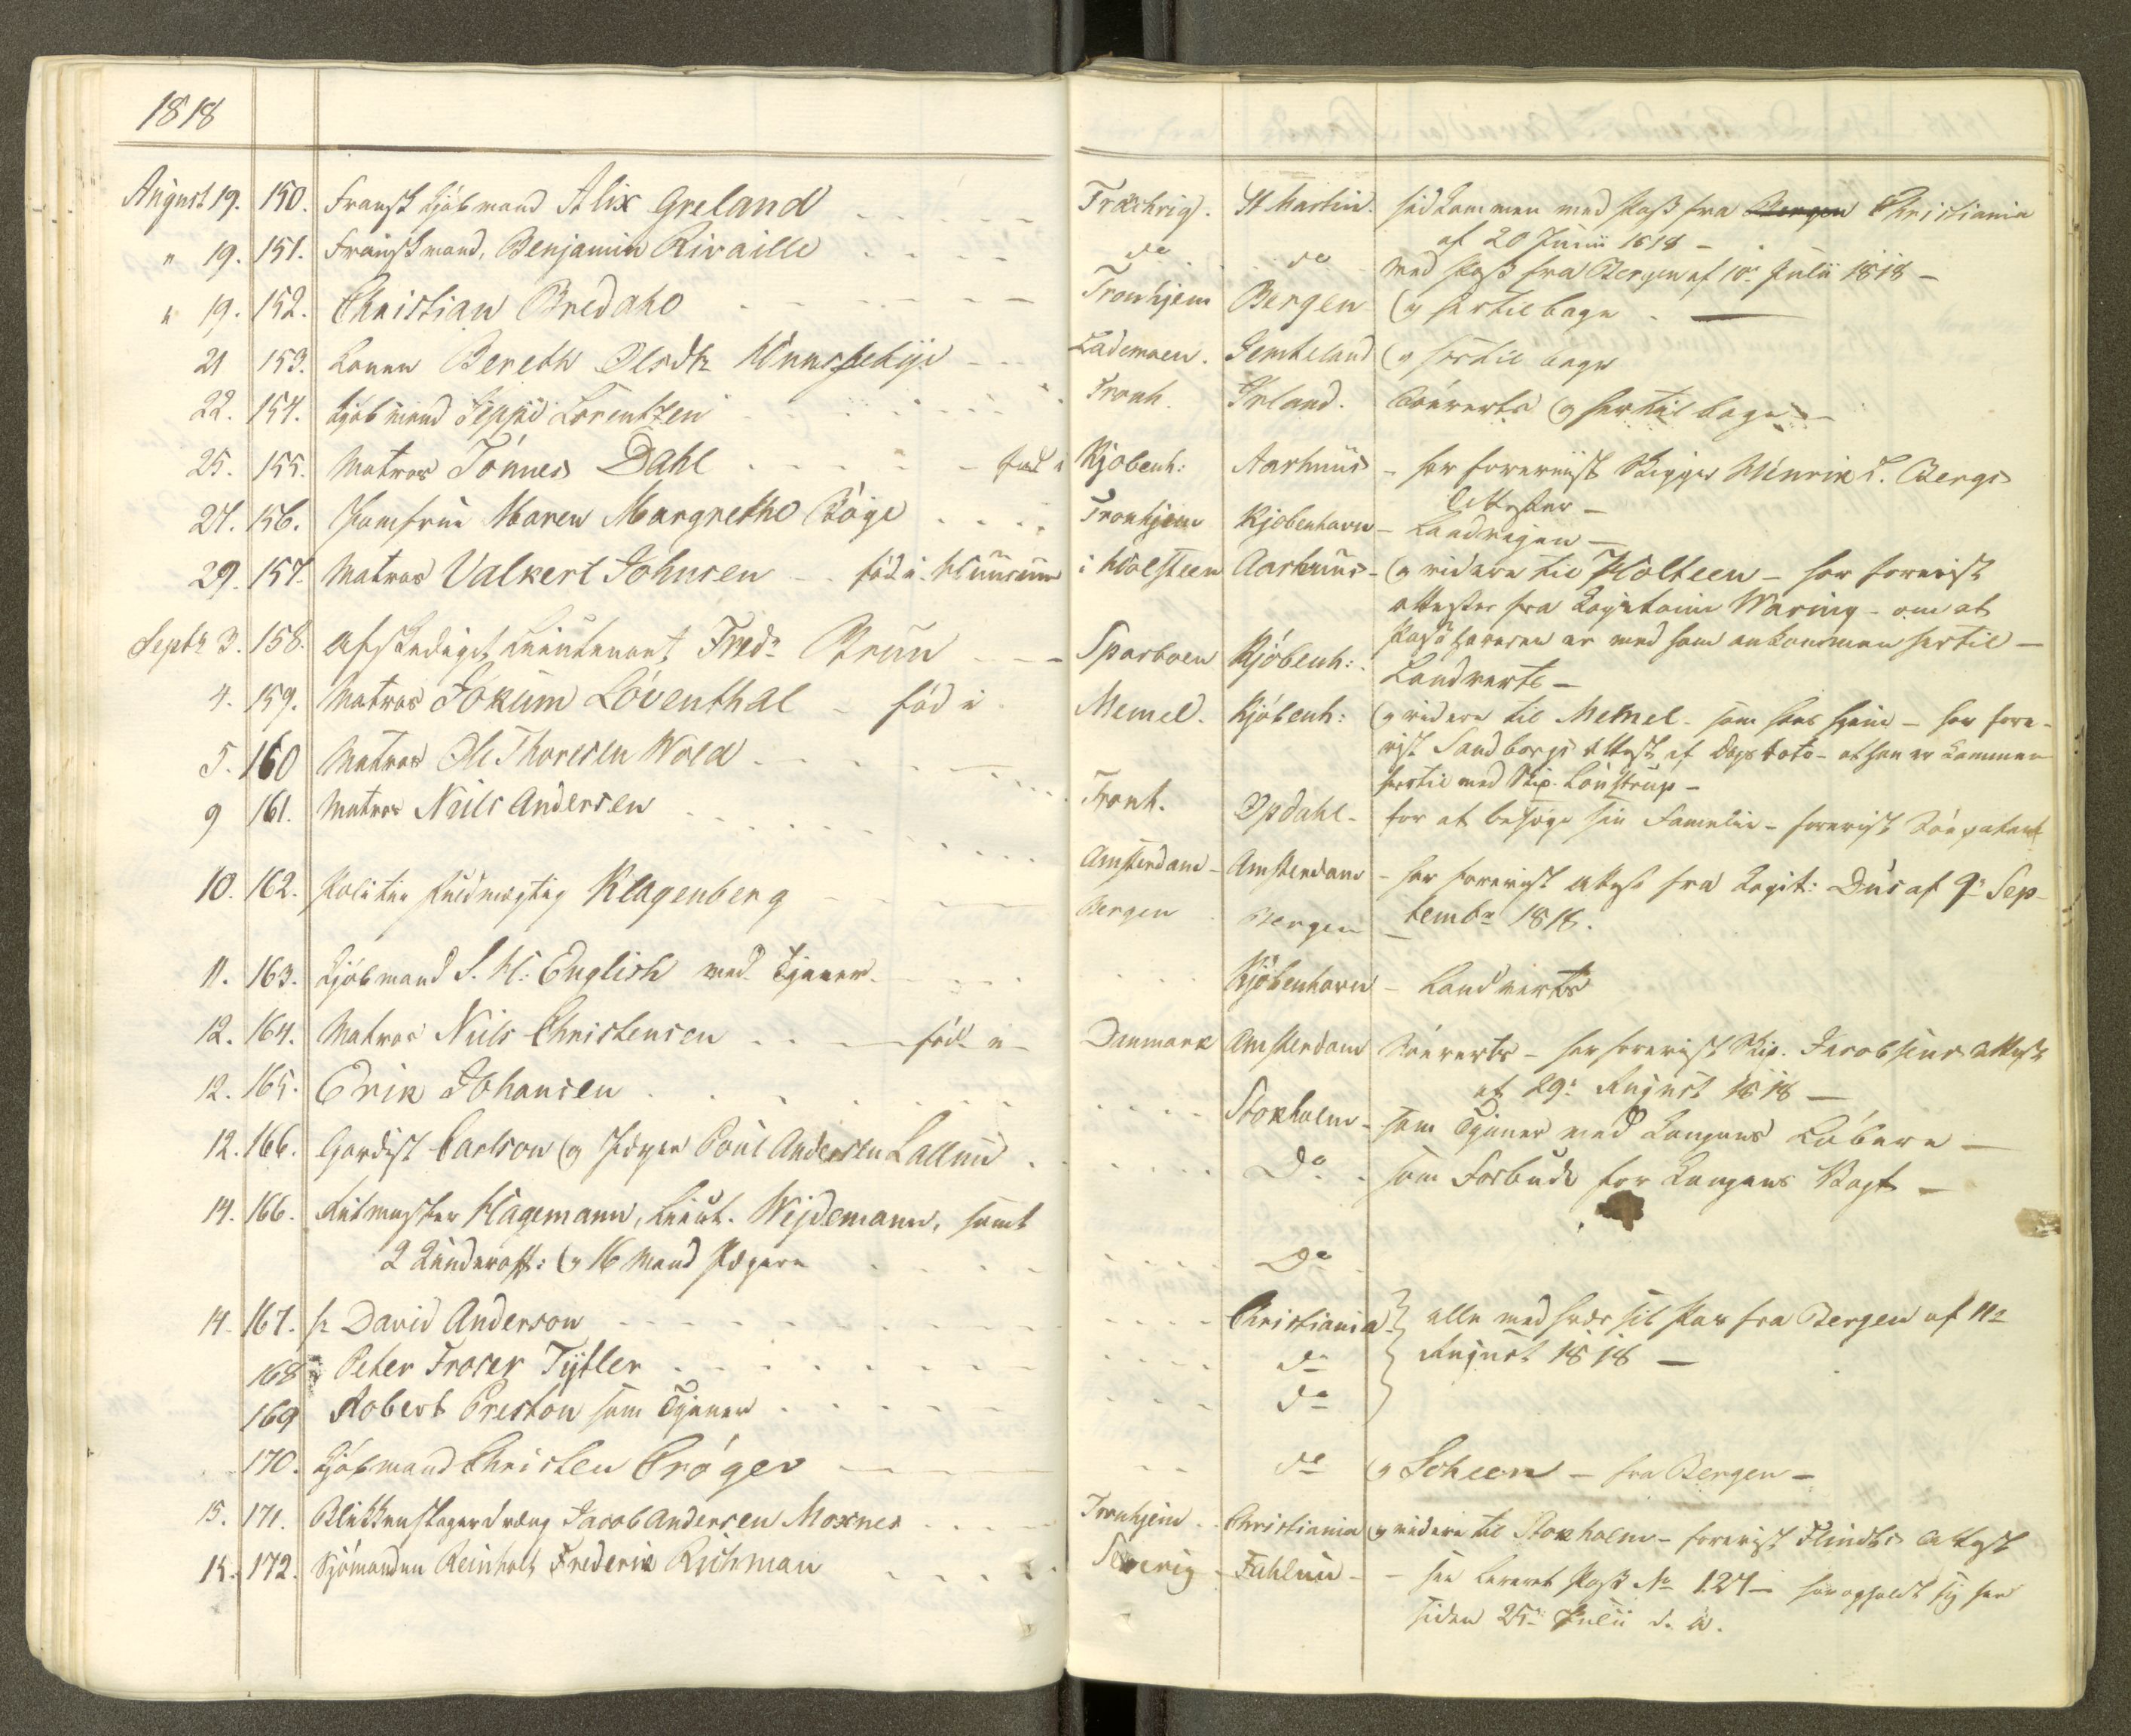 1818
August 19. 150. Fransk Kjöbmand Alix Greland Frankrig. St Martin. hidkommen med Pass fra Bergen Christiania
af 20 Junii 1818 -
" 19. 151. Franskmand, Benjamin Rivaille do do med Pass fra Bergen af 10de Julii 1818 -
" 19. 152. Christian Bredahl Tronhjem Bergen og hertilbage
21 153. Konen Bereth Olsdtr Lademoen. Jemteland og hertilbage
22. 154. Kjöbmand Jeppe Lorentzen Tronh. Irland. Söeverts og hertilbage
25. 155. Matros Tönnes Dahl fød i Kjobenh: Aarhuus - har foreviist Skipper Hinrik L. Bergs
Attester -
27. 156. Jomfrue Maren Margrethe Böge Tronhjem Kjobenhavn - Landveien -
29. 157. Matros Valkert Johnsen - föd i Huusum i Holsteen Aarhuus - og videre til Holsteen - har forevist
attester fra Kapitain Waring - om at
er med ham ankommen hertil -
Septbr 3. 158. Afskediget Lieutenant Fredr Brun Sparboen Kjöbenh: Landverts -
4. 159. Matros Jokum Löventhal - föd i Memel. Kjöbenh: og videre til Memel - som hans hjem - har fore-
vist Sandborgs Attest af Dags Dato - at han er kommen
hertil med Skip. Lönstrup -
5. 160 Matros Ole Thoresen Wold Tronh. Opdahl - for at besöge sin Familie - forevist Söepatent
9 161. Matros Niels Andersen Amsterdam - Amsterdam - har forevist Attest fra Capit: Dús af 9de Sep-
tembr 1818.
10. 162. Politie fuldmegtig Klagenberg Bergen Bergen
11. 163. Kjöbmand S. H. English med Tjener Kjöbenhavn - Landverts
12. 164. Matros Niels Christensen - föd i Danmark Amsterdam Söeverts - har forevist Skip. Jacobsens Attest
af 29de August 1818 -
12. 165. Erik Johansen Stokholm - som Tjener med Kongens Löbere -
12. 166. Gardist Carlson og Jæger Poul Andersen Do som Forbud for Kongens Vagt -
14. 166. Ritmester Hagemann, Lieut. Wejdemann, samt
2 Underoff: og 16 Mand Jægere Do
14. 167. hr David Anderson Christiania } alle med hver sit Pas fra Bergen af 11te
168 Peter Fraser Tytler do } August 1818 -
169 Robert Preston som Tjener do }
170. Kjöbmand Christen Cröger do og Scheen - fra Bergen -
15. 171. Blikkenslagerdreng Jacob Andersen Moxnes Tronhjem Christiania og videre til Stokholm - forevist Flindts Attest
15. 172. Sjömanden Reinholt Frederik Richman Sverig - Fahlun - - see leveret Pass No 127 - har opholdt sig her
siden 25de Julii d. A.